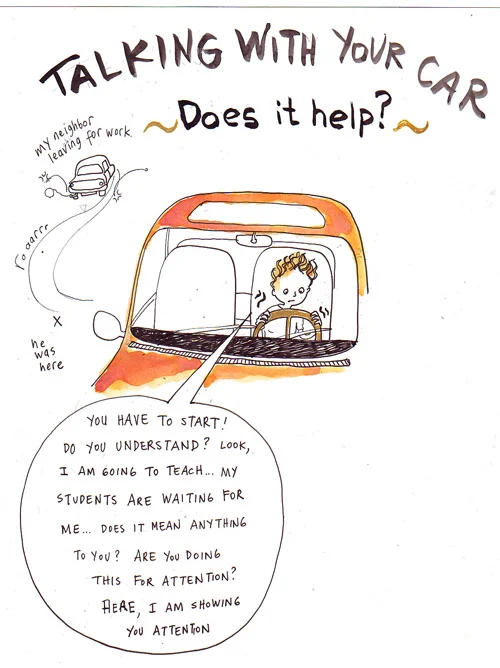 TALKING WITH YOUR CAR
~Does it help?~
my neighbor
leaving for work
ro aarrr
X
he
was
here
YOU HAVE TO START!
DO YOU UNDERSTAND? LOOK,
I AM GOING TO TEACH... MY
STUDENTS ARE WAITING FOR
ME... DOES IT MEAN ANYTHING
TO YOU? ARE YOU DOING
THIS FOR ATTENTION?
HERE, I AM SHOWING
YOU ATTENTION